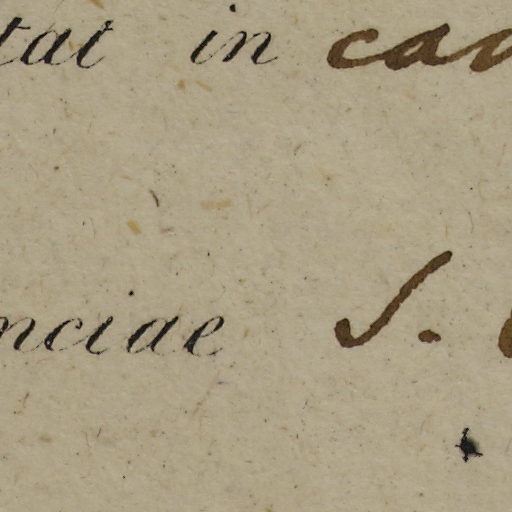 tat in ca
nciae S.